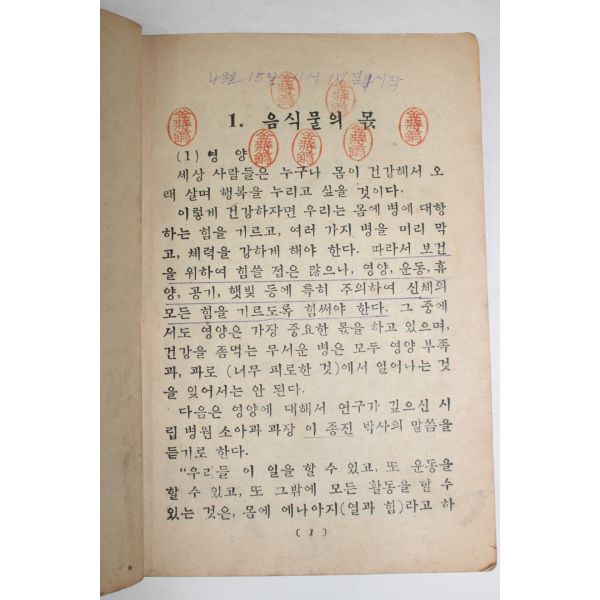 4월 15일 11시 15분 시작
1. 음식물의 몫
(1) 영양
세상 사람들은 누구나 몸이 건강해서 오
래 살며 행복을 누리고 싶을 것이다.
이렇게 건강하자면 우리는 몸에 병에 대항
하는 힘을 기르고, 여러 가지 병을 미리 막
고, 체력을 강하게 해야 한다. 따라서 보건
을 위하여 힘쓸 점은 많으나, 영양, 운동, 휴
양, 공기, 햇빛 등에 특히 주의하여 신체의
모든 힘을 기르도록 힘써야 한다. 그 중에
서도 영양은 가장 중요한 몫을 하고 있으며,
건강을 좀먹는 무서운 병은 모두 영양 부족
과, 과로 (너무 피로한 것)에서 일어나는 것
을 잊어서는 안 된다.
다음은 영양에 대해서 연구가 깊으신 시
립 병원 소아과 과장 이 종진 박사의 말씀을
듣기로 한다.
“우리들 이 일을 할 수 있고, 또 운동을
할 수 있고, 또 그밖에 모든 활동을 할 수
있는 것은, 몸에 에나아지(열과 힘)라고 하
( 1 )